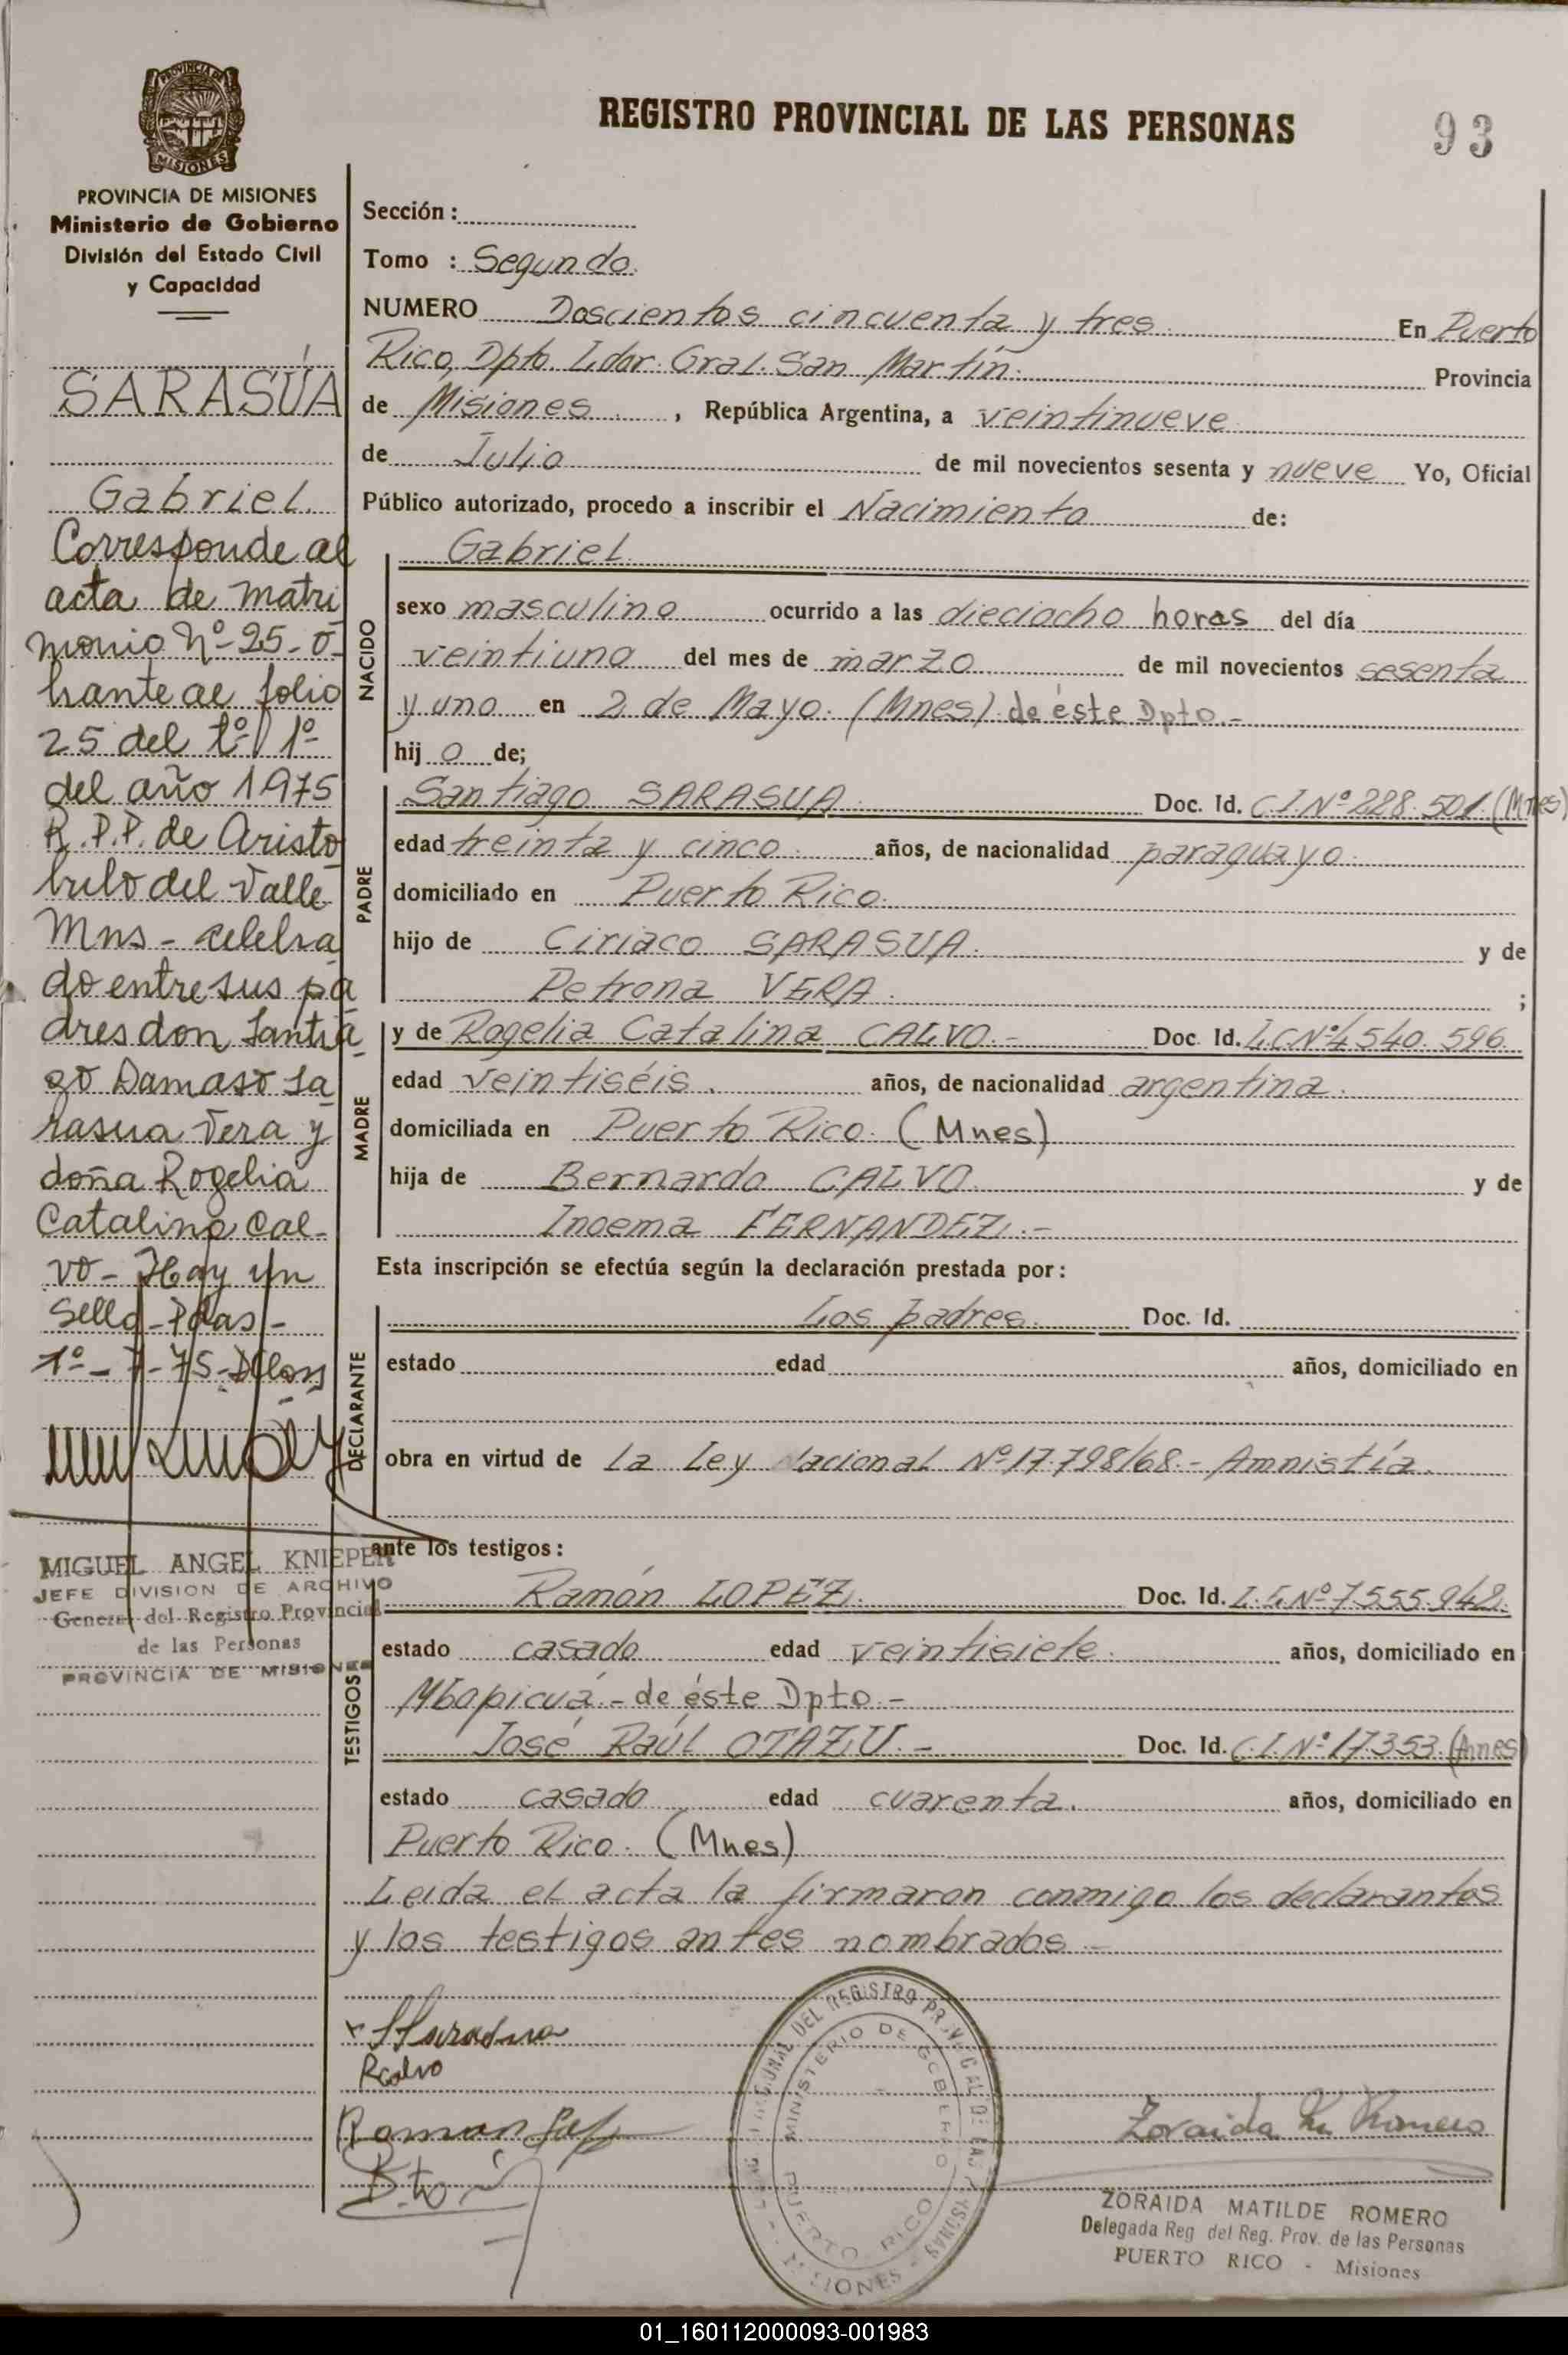 REGISTRO PROVINCIAL DE LAS PERSONAS
93
PROVINCIA DE
MISIONES
PROVINCIA DE MISIONES
Ministerio de Gobierno
División del Estado Civil
y Capacidad
SARASÚA
Gabriel.
Corresponde al
acta de matri
monio Nº 25-o-
brante al folio
25 del tº 1º
del año 1975
R.P.P. de Aristo
bulo del Valle
Mns - celebra
do entre sus pa
dres don Santia
go Damaso Sa
rasua Vera y
doña Rogelia
Catalina Cal-
vo - Hay un
Sello - Pdas -
1º - 7 - 75 -
MIGUEL ANGEL KNIEPER
JEFE DIVISION DE ARCHIVO
General del Registro Provincial
de las Personas
PROVINCIA DE MISIONES
Sección :
Tomo : Segundo.
NUMERO Doscientos cincuenta y tres En Puerto
Rico, Dpto. Ldor. Gral. San Martín. Provincia
de Misiones , República Argentina, a veintinueve
de Julio de mil novecientos sesenta y nueve Yo, Oficial
Público autorizado, procedo a inscribir el Nacimiento de:
NACIDO
Gabriel
sexo masculino ocurrido a las dieciocho horas del día
veintiuno del mes de marzo de mil novecientos sesenta
y uno en 2 de Mayo. (Mnes) de éste Dpto.-
hij o de;
PADRE
Santiago SARASUA Doc. Id. C.I.Nº 228.501.(Mnes)
edad treinta y cinco años, de nacionalidad paraguayo.
domiciliado en Puerto Rico.
hijo de Ciriaco SARASUA. y de
Petrona VERA. ;
MADRE
y de Rogelia Catalina CALVO.- Doc. Id. L.C.Nº 4.540.596.
edad veintiséis. años, de nacionalidad argentina.
domiciliada en Puerto Rico. (Mnes)
hija de Bernardo CALVO y de
Inoema FERNANDEZ.-
Esta inscripción se efectúa según la declaración prestada por :
DECLARANTE
Los padres. Doc. Id.
estado edad años, domiciliado en
obra en virtud de la Ley Nacional Nº 17.798/68.- Amnistía.
ante los testigos :
TESTIGOS
Ramón LOPEZ. Doc. Id. L.E.Nº 7.555.942.
estado casado edad veintisiete. años, domiciliado en
Mbopicuá.- de éste Dpto.-
José Raúl OTAZU.- Doc. Id. C.I.Nº 17.353.(Mnes)
estado casado edad cuarenta. años, domiciliado en
Puerto Rico. (Mnes)
Leida el acta la firmaron conmigo los declarantes
y los testigos antes nombrados.-
SSarasua
RCalvo
Roman
DEL REGISTRO PROVINCIAL DE LAS PERSONAS
MINISTERIO DE GOBIERNO
PUERTO RICO
MISIONES
Zoraida M. Romero
ZORAIDA MATILDE ROMERO
Delegada Reg del Reg. Prov. de las Personas
PUERTO RICO - Misiones
01_160112000093-001983